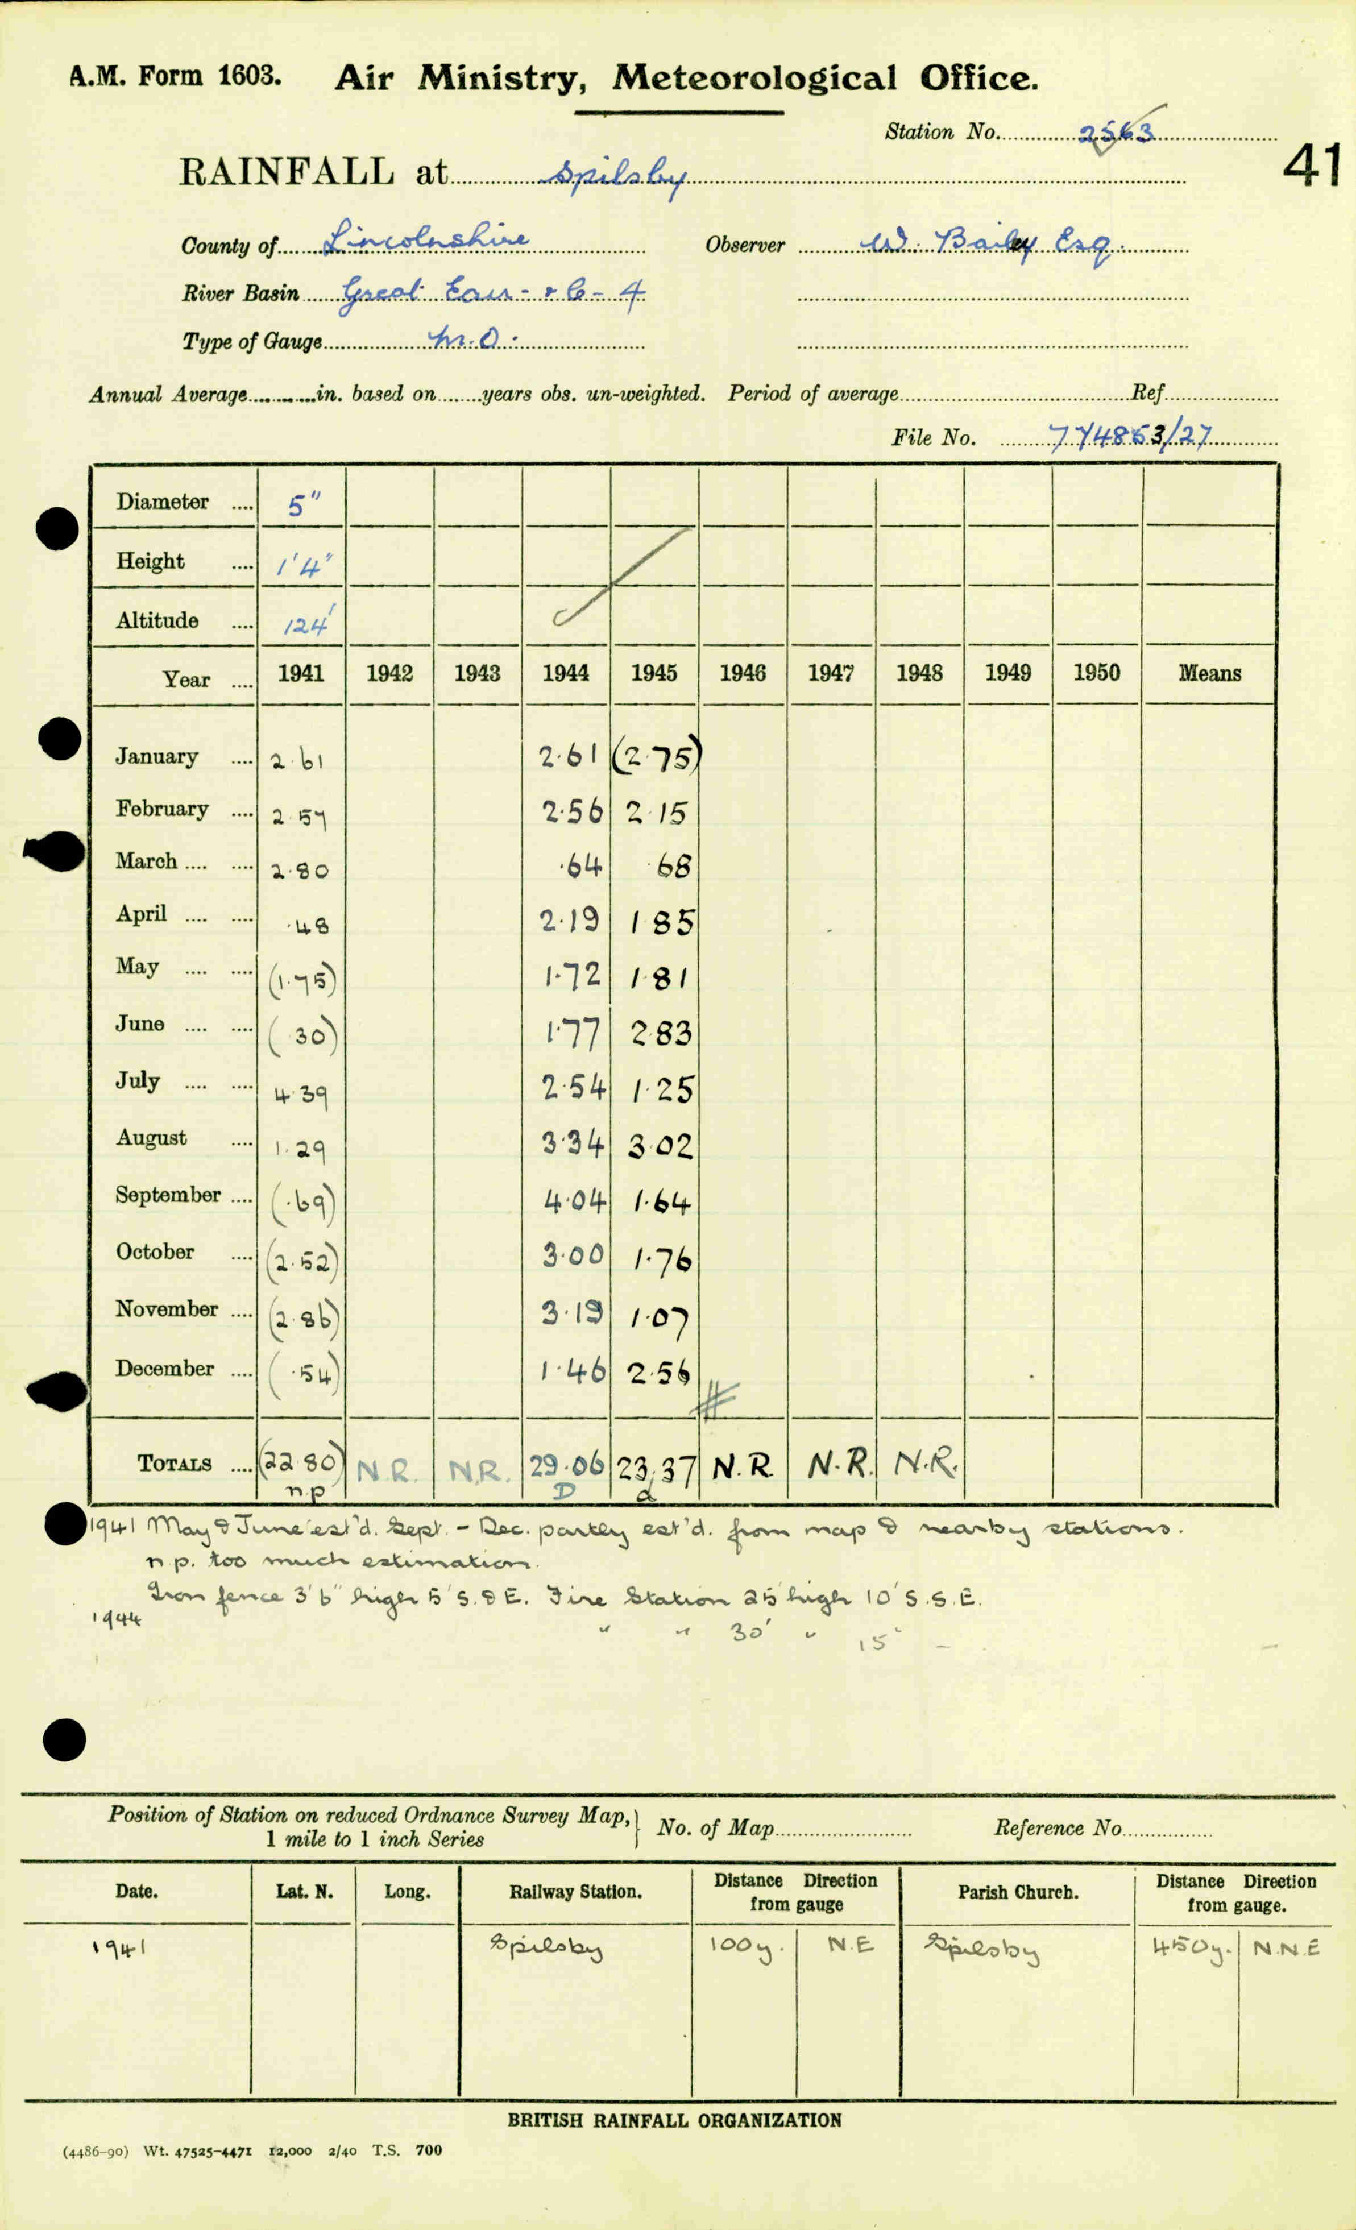 A.M. Form 1603. Air Ministry, Meteorological Office.
Station No. 2563
41
RAINFALL at Spilsby
County of Lincolnshire Observer W. Bailey Esq.
River Basin Great Eau - & C - 4
Type of Gauge M.O.
Annual Average in. based on years obs. un-weighted. Period of average Ref.
File No. 774853/27
Diameter .... 5"
Height .... 1'4"
Altitude .... 124'
Year .... 1941 1942 1943 1944 1945 1946 1947 1948 1949 1950 Means
January .... 2.61 2.61 (2.75)
February .... 2.57 2.56 2.15
March .... .... 2.80 .64 .68
April .... .... .48 2.19 1 85
May .... .... (1.75) 1.72 1.81
June .... .... (.30) 1.77 2.83
July .... .... 4.39 2.54 1.25
August .... 1.29 3.34 3.02
September .... (.69) 4.04 1.64
October .... (2.52) 3.00 1.76
November .... (2.86) 3.19 1.07
December .... (.54) 1.46 2.56
TOTALS .... (22.80) N.R. N.R. 29.06 23.37 N.R. N.R. N.R.
n.p D d
1941 May & June est'd. Sept. - Dec. partly est'd. from map & nearby stations.
n p. too much estimation.
Iron fence 3'6" high 5' S. & E. Fire Station 25' high 10' S.S.E.
1944 " " 30' " 15' -
Position of Station on reduced Ordnance Survey Map, No. of Map Reference No.
1 mile to 1 inch Series
Date. Lat. N. Long. Railway Station. Distance Direction from gauge Parish Church. Distance Direction from gauge.
1941 Spilsby 100y. N.E Spilsby 450y. N.N.E
BRITISH RAINFALL ORGANIZATION
(4486-90) Wt. 47525-4471 12,000 2/40 T.S. 700